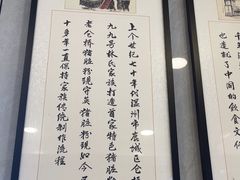 上个世纪七十年代温州市鹿城区仓桥
九九号林氏家族打造首家特色猪脏粉
老仓桥猪脏粉现守英猪脏粉现如今
十多年一直保持家族传统制作流程
也造就了中国的饮食文